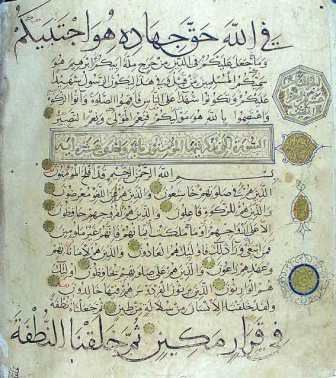 في الله حق جهاده هو اجتبيكم
وما جعل عليكم في الدين من حرج ملة ابيكم ابرهيم هو
سميكم المسلمين من قبل وفي هذا ليكون الرسول شهيدا
عليكم وتكونوا شهدا على الناس فاقيموا الصلوة واتوا الزكوة
واعتصموا بالله هو موليكم فنعم المولى ونعم النصير
بسم الله الرحمن الرحيم قد افلح المؤمنون
الذين هم في صلوتهم خاشعون والذين هم عن اللغو معرضون
والذين هم للزكوة فاعلون والذين هم لفروجهم حافظون
الا على ازواجهم او ما ملكت ايمانهم فانهم غير ملومين
فمن ابتغى وراء ذلك فاوليك هم العادون والذين هم لاماناتهم
وعهدهم راعون والذين هم على صلواتهم يحافظون اوليك
هم الوارثون الذين يرثون الفردوس هم فيها خالدون
ولقد خلقنا الانسان من سلالة من طين ثم جعلناه نطفة
في قرار مكين ثم خلقنا النطفة